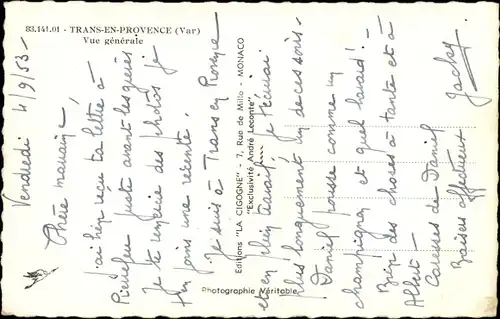 83.141.01 - TRANS-EN-PROVENCE (Var)
Vue générale
Vendredi 4/9/53 -
Chère mamaine,
j'ai bien reçu ta lettre à
Pierrefeu juste avant les grèves
Je te remercie des photos, je
t'en joins une récente.
Je suis à Trans en Provence
et en plein travail... je t'écrirai
plus longuement un de ces soirs -
Daniel pousse comme un
champignon et quel bavard! -
Bien des choses à tante et à
Albert -
Caresses de Daniel
Baisers affectueux
Jacky
Editions "LA CIGOGNE" - 7, Rue de Millo - MONACO
"Exclusivité André Leconte"
Photographie Véritable